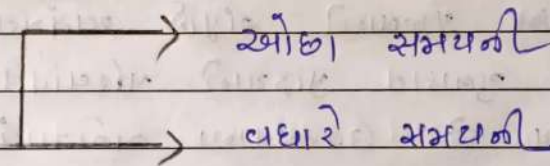 ઓછા સમયની
વધારે સમયની